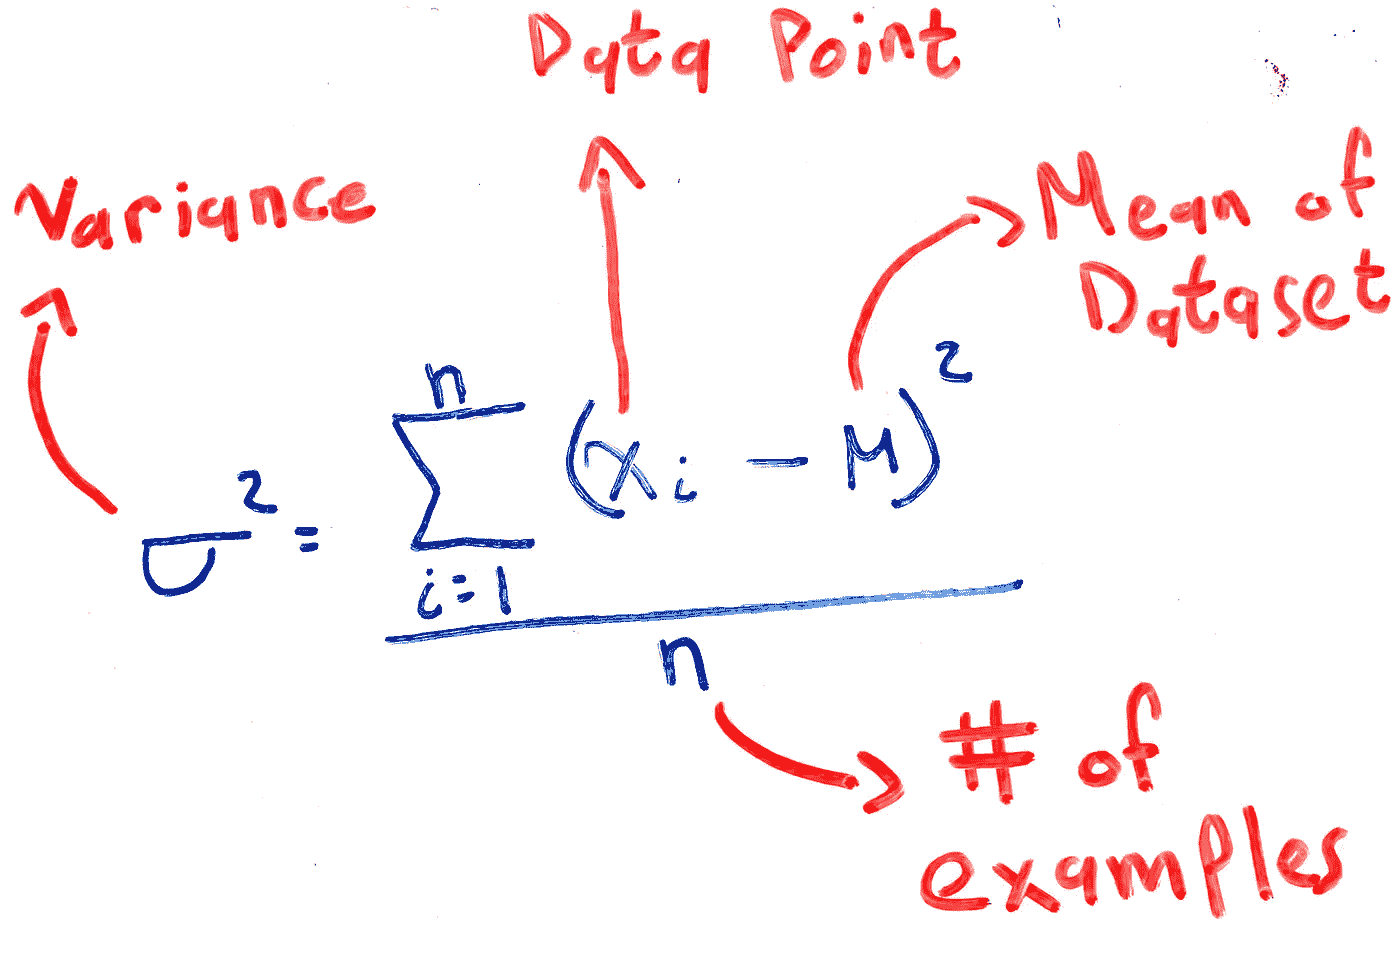 Data Point
Variance
Mean of
Dataset
σ² = n
∑ (xᵢ - μ)²
i=1
n
# of
examples